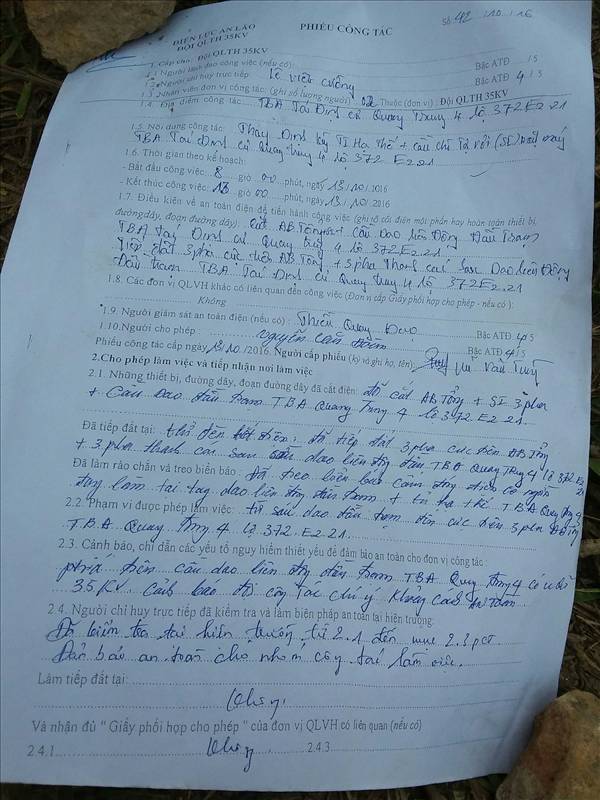 ĐIỆN LỰC AN LÃO
ĐỘI QLTH 35KV
PHIẾU CÔNG TÁC
Số 42 /10 /16
1. Cấp cho: Đội QLTH 35KV
1.1 Người lãnh đạo công việc (nếu có): Bậc ATĐ /5
1.2 Người chỉ huy trực tiếp: Lê Viết Cường Bậc ATĐ 4 /5
1.3. Nhân viên đơn vị công tác: (ghi số lượng người) 02 Thuộc (đơn vị) : Đội QLTH 35KV
1.4. Địa điểm công tác: TBA Tái Định cư Quang Trung 4 lộ 372 E2.21
1.5. Nội dung công tác: Thay Định kỳ TI Hạ Thế + cầu chì Tự rơi (SI)
TBA Tái Định cư Quang Trung 4 lộ 372 E2.21
1.6. Thời gian theo kế hoạch:
- Bắt đầu công việc: 8 giờ 00 phút, ngày 13/10/2016
- Kết thúc công việc: giờ 00 phút, ngày 13/10/2016
1.7. Điều kiện về an toàn điện để tiến hành công việc (ghi rõ cắt điện một phần hay hoàn toàn thiết bị,
đường dây, đoạn đường dây): Cắt AB Tổng + Cầu Dao liên Động Đầu Trạm
TBA Tái Định cư Quang Trung 4 lộ 372 E2.21
Tiếp đất 3 pha cực trên AB Tổng, + 3 pha Thanh cái sau Dao liên Động
Đầu trạm TBA Tái Định cư Quang Trung 4 lộ 372 E2.21
1.8. Các đơn vị QLVH khác có liên quan đến công việc (Đơn vị cấp Giấy phối hợp cho phép - nếu có ):
Không
1.9. Người giám sát an toàn điện (nếu có) : Thiều Quang Bậc ATĐ 4/5
1.10.Người cho phép : Nguyễn Văn Bậc ATĐ 4/5
Phiếu công tác cấp ngày 13/10/2016. Người cấp phiếu (ký và ghi họ, tên): Văn
2.Cho phép làm việc và tiếp nhận nơi làm việc
2.1. Những thiết bị, đường dây, đoạn đường dây đã cắt điện: đã cắt AB Tổng + SI 3 pha
+ Cầu Dao đầu trạm TBA Quang Trung 4 lộ 372 E2.21
Đã tiếp đất tại: thử hết điện, đã tiếp đất 3 pha cực trên AB Tổng
+ 3 pha thanh cái sau cầu dao liên động đầu TBA Quang Trung 4 lộ 372 E2
Đã làm rào chắn và treo biển báo: Đã treo biển báo cấm đóng điện có người
đang làm tại tay dao liên động đầu trạm + TBA Quang Trung 4
2.2. Phạm vi được phép làm việc: từ sau dao đầu trạm đến cực trên 3 pha AB Tổng
TBA Quang Trung 4 lộ 372 E2.21
2.3. Cảnh báo, chỉ dẫn các yếu tố nguy hiểm thiết yếu để đảm bảo an toàn cho đơn vị công tác :
phía trên cầu dao liên động đầu trạm TBA Quang Trung 4 có điện
35KV. Cảnh báo đội công tác chú ý khoảng cách An toàn
2.4. Người chỉ huy trực tiếp đã kiểm tra và làm biện pháp an toàn tại hiện trường:
Đã kiểm tra tại hiện trường từ 2.1 đến mục 2.3 pct
Đảm bảo an toàn cho nhóm công tác làm việc.
Làm tiếp đất tại:
Không
Và nhận đủ " Giấy phối hợp cho phép " của đơn vị QLVH có liên quan (nếu có)
2.4.1 Không 2.4.3